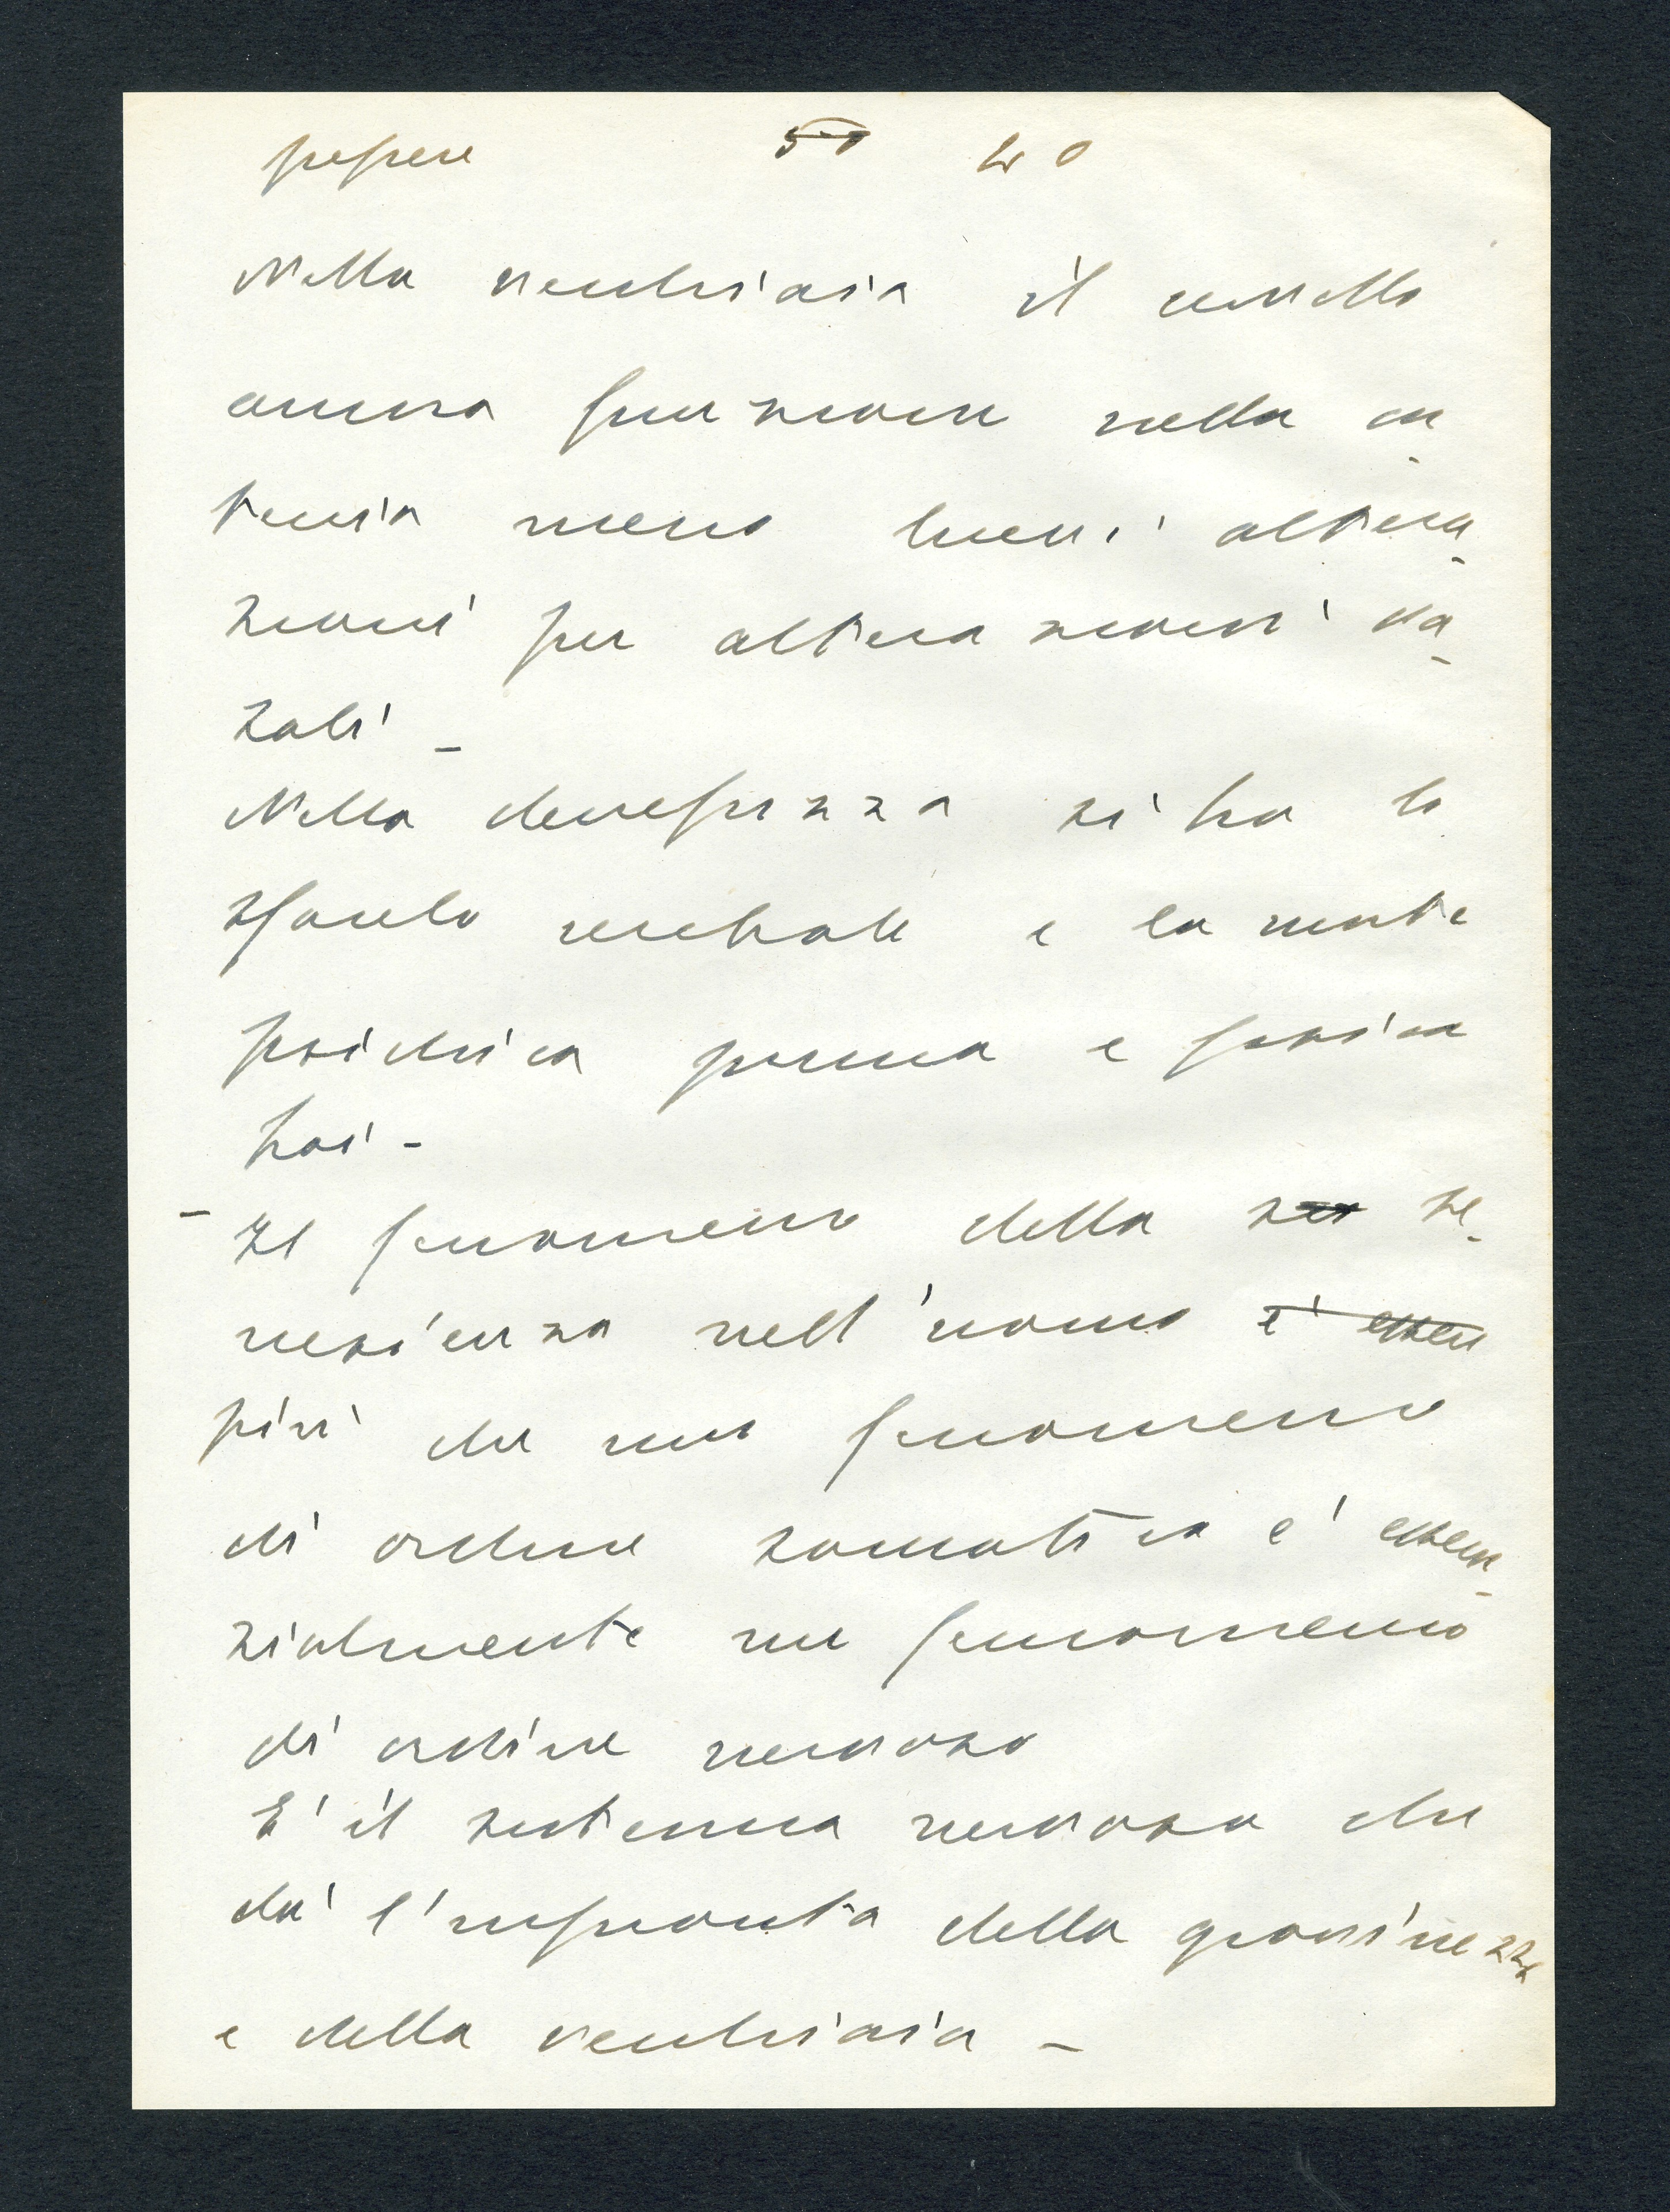 Nella vecchiaia il cervello
ancora funziona nella ca
tenia meno lievi altera
zioni per alterazioni va
sali -
Nella decrepizza si ha lo
sfacelo cerebrale e la morte
psichica prima e fisica
poi -
- Il fenomeno della se-
nescenza nell'uomo è essen
più che un fenomeno
di ordine somatico e' essen-
zialmente un fenomeno
di ordine nervoso
E' il sistema nervoso che
da' l'impronta della giovinezza
e della vecchiaia -